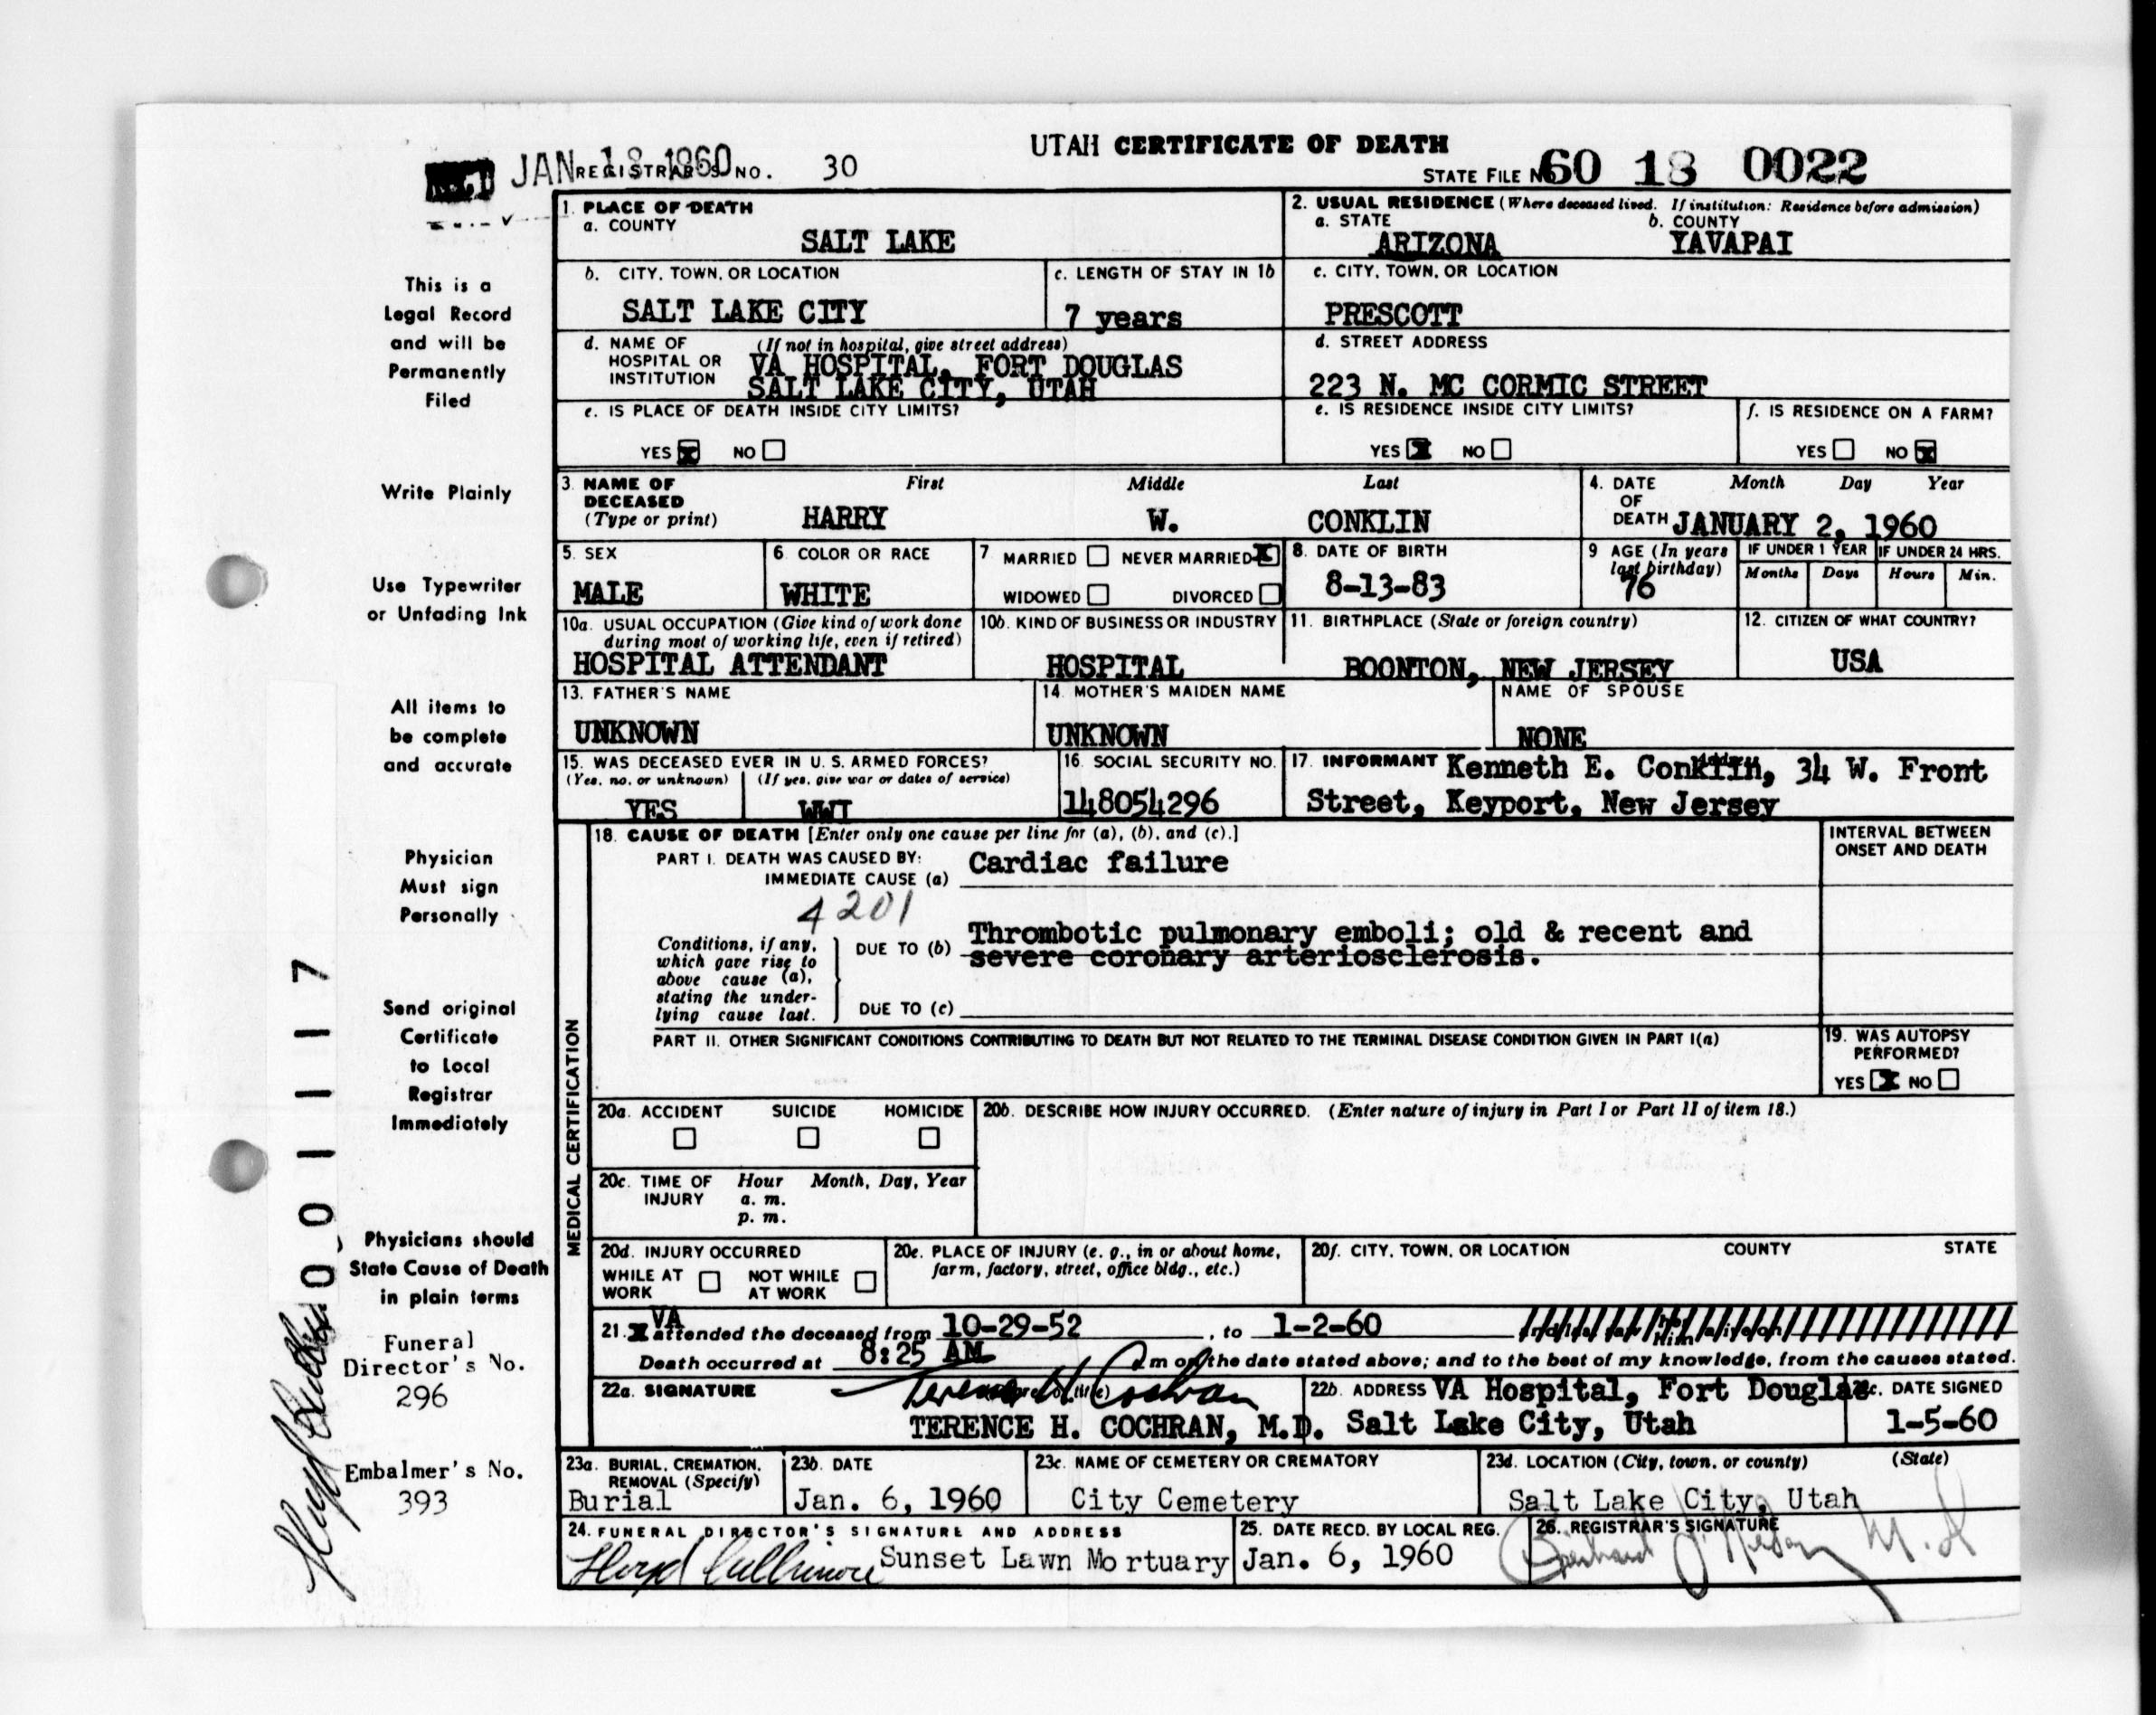 UTAH CERTIFICATE OF DEATH
REC'D JAN 18 1960 REGISTRAR'S NO. 30
STATE FILE NO. 60 18 0022
1. PLACE OF DEATH
a. COUNTY
SALT LAKE
2. USUAL RESIDENCE (Where deceased lived. If institution: Residence before admission)
a. STATE b. COUNTY
ARIZONA YAVAPAI
b. CITY, TOWN, OR LOCATION
SALT LAKE CITY
c. LENGTH OF STAY IN 1b
7 years
c. CITY, TOWN, OR LOCATION
PRESCOTT
d. NAME OF HOSPITAL OR INSTITUTION (If not in hospital, give street address)
VA HOSPITAL, FORT DOUGLAS
SALT LAKE CITY, UTAH
d. STREET ADDRESS
223 N. MC CORMIC STREET
e. IS PLACE OF DEATH INSIDE CITY LIMITS?
YES X NO
e. IS RESIDENCE INSIDE CITY LIMITS?
YES X NO
f. IS RESIDENCE ON A FARM?
YES NO X
3. NAME OF DECEASED (Type or print) First Middle Last
HARRY W. CONKLIN
4. DATE OF DEATH Month Day Year
JANUARY 2, 1960
5. SEX
MALE
6. COLOR OR RACE
WHITE
7 MARRIED NEVER MARRIED X
WIDOWED DIVORCED
8. DATE OF BIRTH
8-13-83
9 AGE (In years last birthday)
76
IF UNDER 1 YEAR IF UNDER 24 HRS.
Months Days Hours Min.
10a. USUAL OCCUPATION (Give kind of work done during most of working life, even if retired)
HOSPITAL ATTENDANT
10b. KIND OF BUSINESS OR INDUSTRY
HOSPITAL
11. BIRTHPLACE (State or foreign country)
BOONTON, NEW JERSEY
12. CITIZEN OF WHAT COUNTRY?
USA
13. FATHER'S NAME
UNKNOWN
14. MOTHER'S MAIDEN NAME
UNKNOWN
NAME OF SPOUSE
NONE
15. WAS DECEASED EVER IN U. S. ARMED FORCES?
(Yes, no, or unknown) (If yes, give war or dates of service)
YES WWI
16. SOCIAL SECURITY NO.
148054296
17. INFORMANT Kenneth E. Conklin, 34 W. Front
Street, Keyport, New Jersey
MEDICAL CERTIFICATION
18. CAUSE OF DEATH [Enter only one cause per line for (a), (b), and (c).]
INTERVAL BETWEEN ONSET AND DEATH
PART I. DEATH WAS CAUSED BY:
IMMEDIATE CAUSE (a) Cardiac failure
4201
Conditions, if any, which gave rise to above cause (a), stating the underlying cause last.
DUE TO (b) Thrombotic pulmonary emboli; old & recent and
severe coronary arteriosclerosis.
DUE TO (c)
PART II. OTHER SIGNIFICANT CONDITIONS CONTRIBUTING TO DEATH BUT NOT RELATED TO THE TERMINAL DISEASE CONDITION GIVEN IN PART I(a)
19. WAS AUTOPSY PERFORMED?
YES X NO
20a. ACCIDENT SUICIDE HOMICIDE
20b. DESCRIBE HOW INJURY OCCURRED. (Enter nature of injury in Part I or Part II of item 18.)
20c. TIME OF INJURY Hour Month, Day, Year
a. m.
p. m.
20d. INJURY OCCURRED
WHILE AT WORK NOT WHILE AT WORK
20e. PLACE OF INJURY (e. g., in or about home, farm, factory, street, office bldg., etc.)
20f. CITY, TOWN, OR LOCATION COUNTY STATE
21. VA attended the deceased from 10-29-52, to 1-2-60
Death occurred at 8:25 AM m on the date stated above; and to the best of my knowledge, from the causes stated.
22a. SIGNATURE Terence H. Cochran
TERENCE H. COCHRAN, M.D.
22b. ADDRESS VA Hospital, Fort Douglas
Salt Lake City, Utah
22c. DATE SIGNED
1-5-60
23a. BURIAL, CREMATION, REMOVAL (Specify)
Burial
23b. DATE
Jan. 6, 1960
23c. NAME OF CEMETERY OR CREMATORY
City Cemetery
23d. LOCATION (City, town, or county) (State)
Salt Lake City, Utah
24. FUNERAL DIRECTOR'S SIGNATURE AND ADDRESS
Sunset Lawn Mortuary
25. DATE RECD. BY LOCAL REG.
Jan. 6, 1960
26. REGISTRAR'S SIGNATURE
This is a
Legal Record
and will be
Permanently
Filed
Write Plainly
Use Typewriter
or Unfading Ink
All items to
be complete
and accurate
Physician
Must sign
Personally
Send original
Certificate
to Local
Registrar
Immediately
Physicians should
State Cause of Death
in plain terms
Funeral
Director's No.
296
Embalmer's No.
393
001117